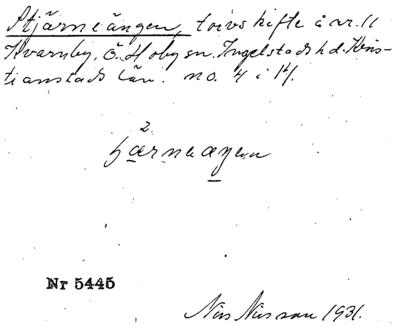 Stjärneängen, tovskifte å nr. 11
Kvarnby. Ö. Hoby sn. Ingelstads hd. Kris-
tianstads län. no. 4 i 14.
2
Nr 5445
Nils Nilsson 1931.